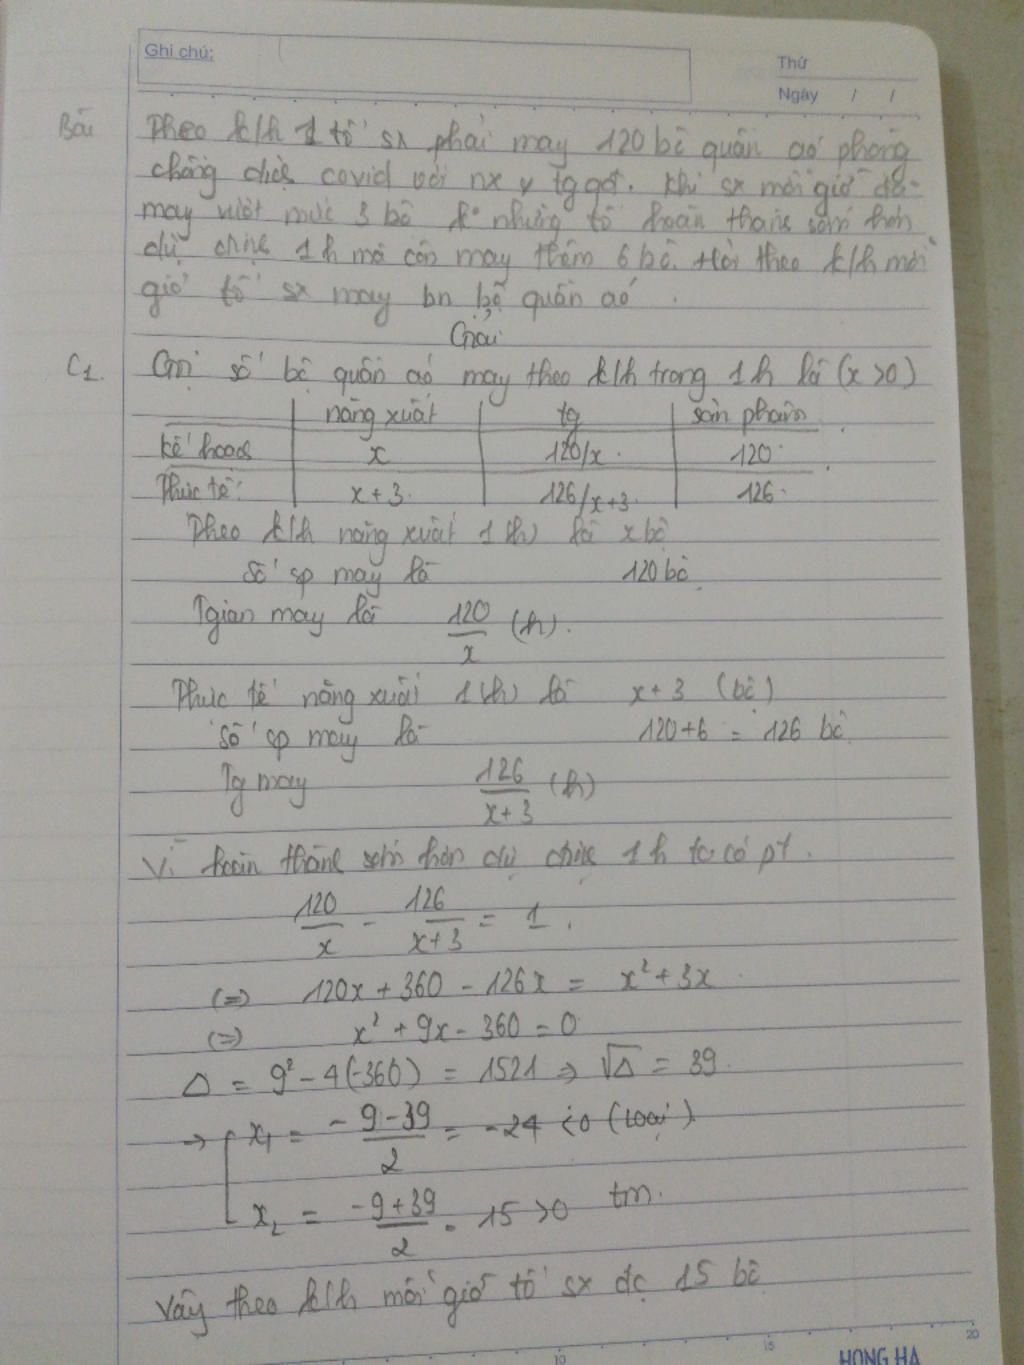 Ghi chú:
Thứ
Ngày / /
Bài Theo k/h 1 tổ sx phải may 120 bộ quần áo phòng
chống dịch covid với nx v tg qđ. Khi sx mỗi giờ đã
may vượt mức 3 bộ nhưng tổ hoàn thành sớm hơn
dự định 1h mà còn may thêm 6 bộ. Hỏi theo k/h mỗi
giờ tổ sx may bn bộ quần áo.
Giải
C1. Gọi số bộ quần áo may theo k/h trong 1h là (x >0)
năng xuất tg sản phẩm
kế hoạch x 120/x. 120.
Thực tế: x+3. 126/x+3. 126.
Theo k/h năng xuất 1(h) là x bộ
Số sp may là 120 bộ
Tgian may là 120/x (h).
Thực tế năng xuất 1(h) là x+3 (bộ)
Số sp may là 120+6 = 126 bộ
Tg may 126/x+3 (h)
Vì hoàn thành sớm hơn dự định 1h ta có pt.
120/x - 126/x+3 = 1.
(=) 120x + 360 - 126x = x² + 3x
(=) x² + 9x - 360 = 0
Δ = 9² - 4(-360) = 1521 => √Δ = 39.
→ [ x₁ = -9-39/2 = -24 <0 (loại)
x₂ = -9+39/2 = 15 >0 tm.
Vậy theo k/h mỗi giờ tổ sx đc 15 bộ
10 15 20
HONG HA